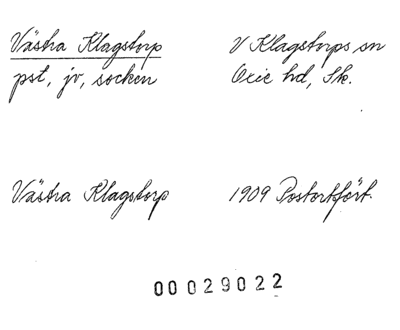 Västra Klagstorp
pst, jv, socken
V Klagstorps sn
Oxie hd, Sk.
Västra Klagstorp
1909 Postortfört.
00029022